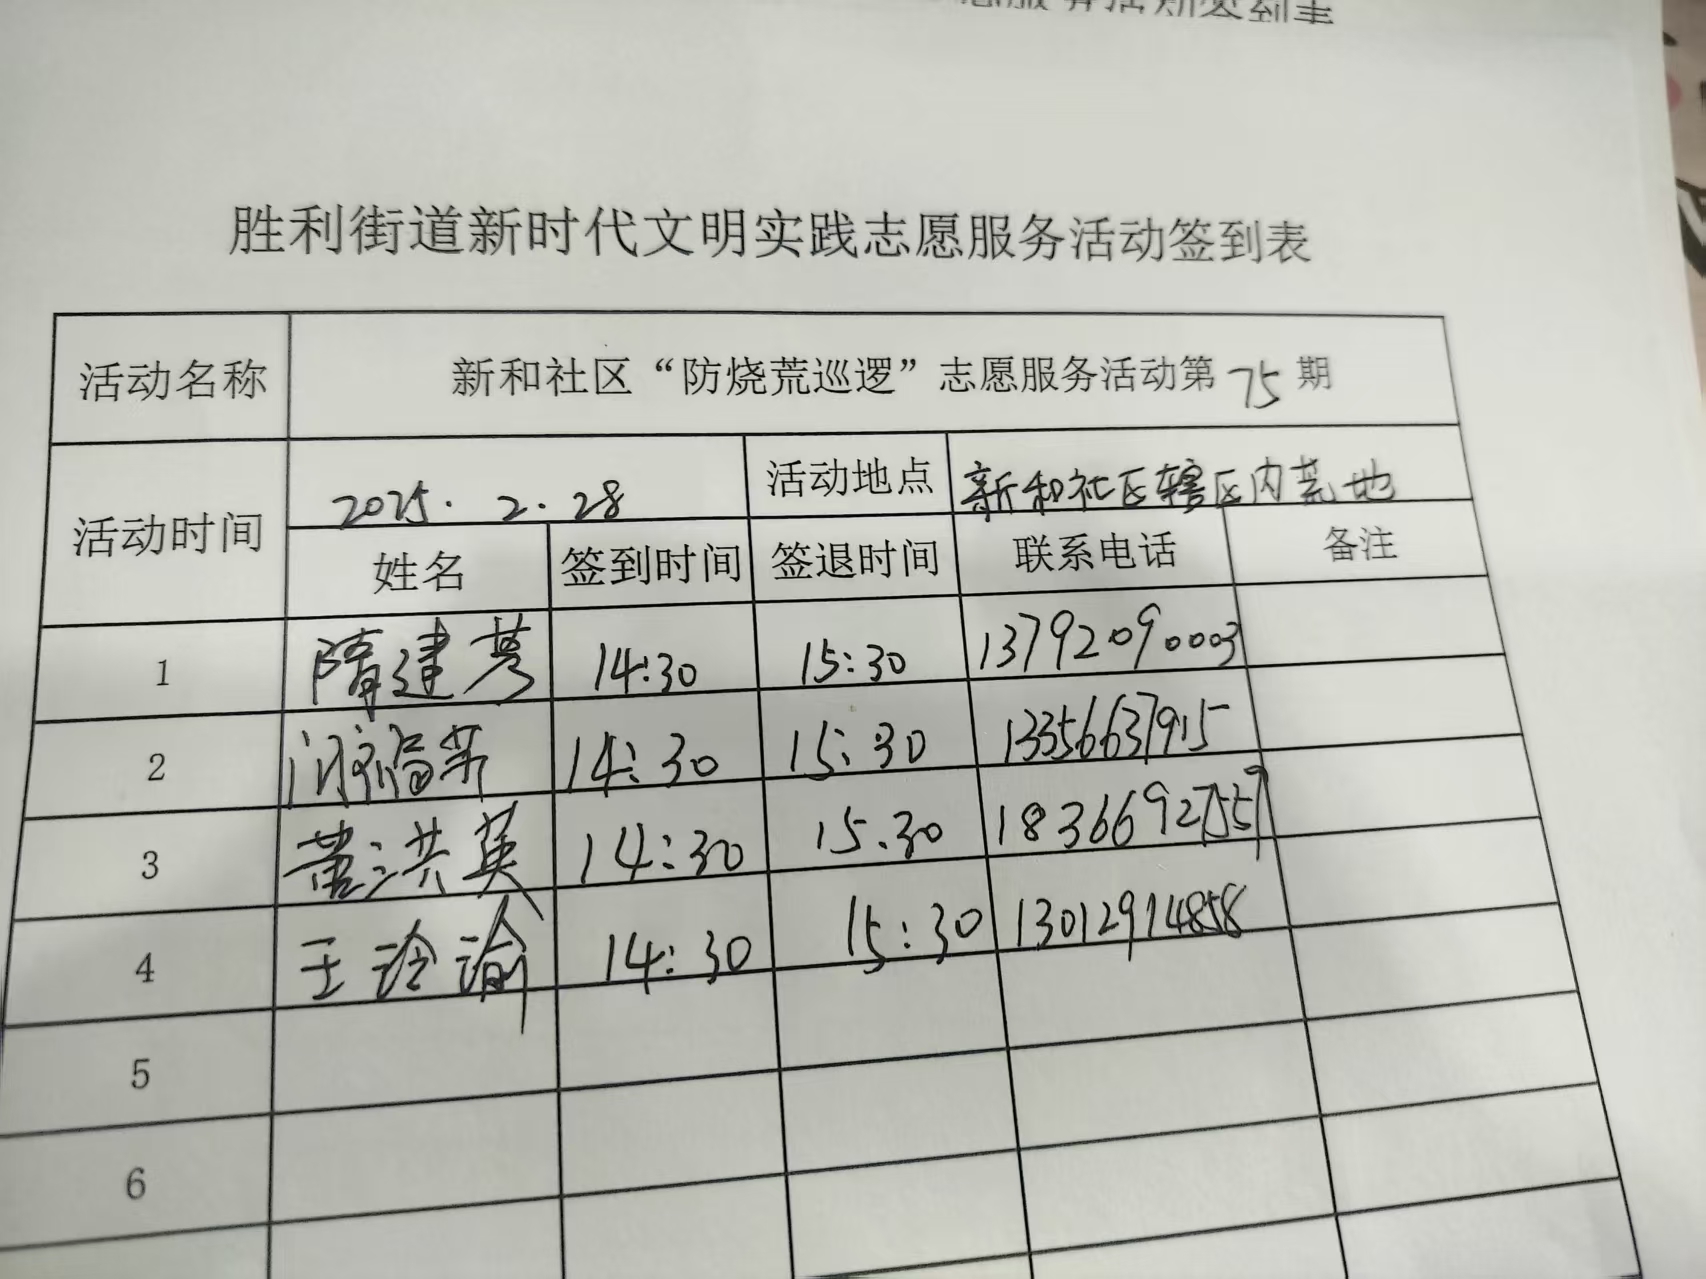 胜利街道新时代文明实践志愿服务活动签到表
活动名称 新和社区“防烧荒巡逻”志愿服务活动第75期
活动时间 2025.2.28 活动地点 新和社区辖区内荒地
姓名 签到时间 签退时间 联系电话 备注
1 隋建 14:30 15:30 13792090003
2 14:30 15:30 13356637915
3 董洪英 14:30 15.30 18366927557
4 王 14:30 15:30 13012914858
5
6